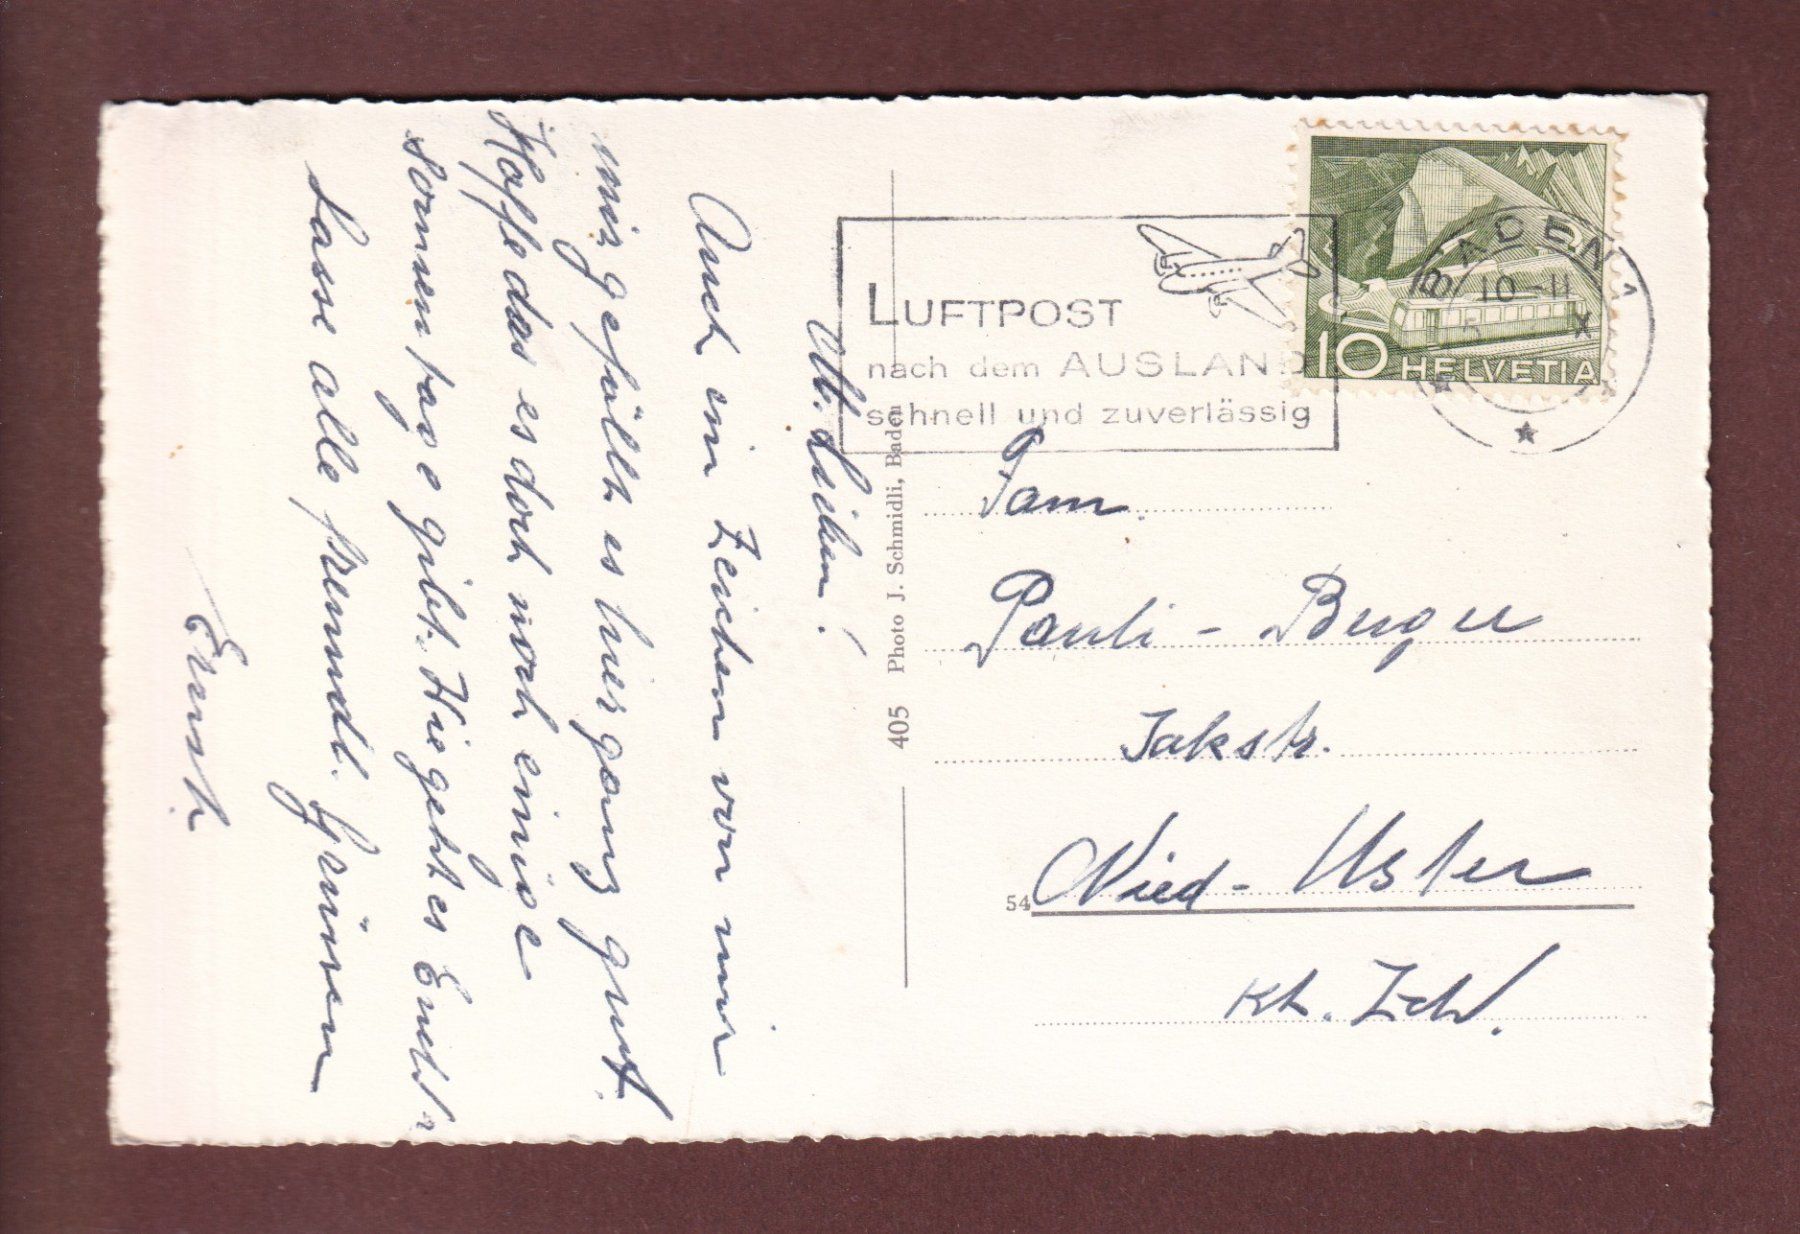 M. Lieben!
Auch ein Zeichen von mir
mir gefällt es hier ganz gut.
Hoffe das es doch noch einige
Sonnentage gibt. Hie geht es
Lasse alle freundl. Grüssen
Ernst.
405 Photo J. Schmidli, Baden
LUFTPOST
nach dem AUSLAND
schnell und zuverlässig
BADEN 1
10-11
X
10 HELVETIA
Fam.
Pauli - Berger
Jakstr.
54
Nied - Uster
Kt. Zch.